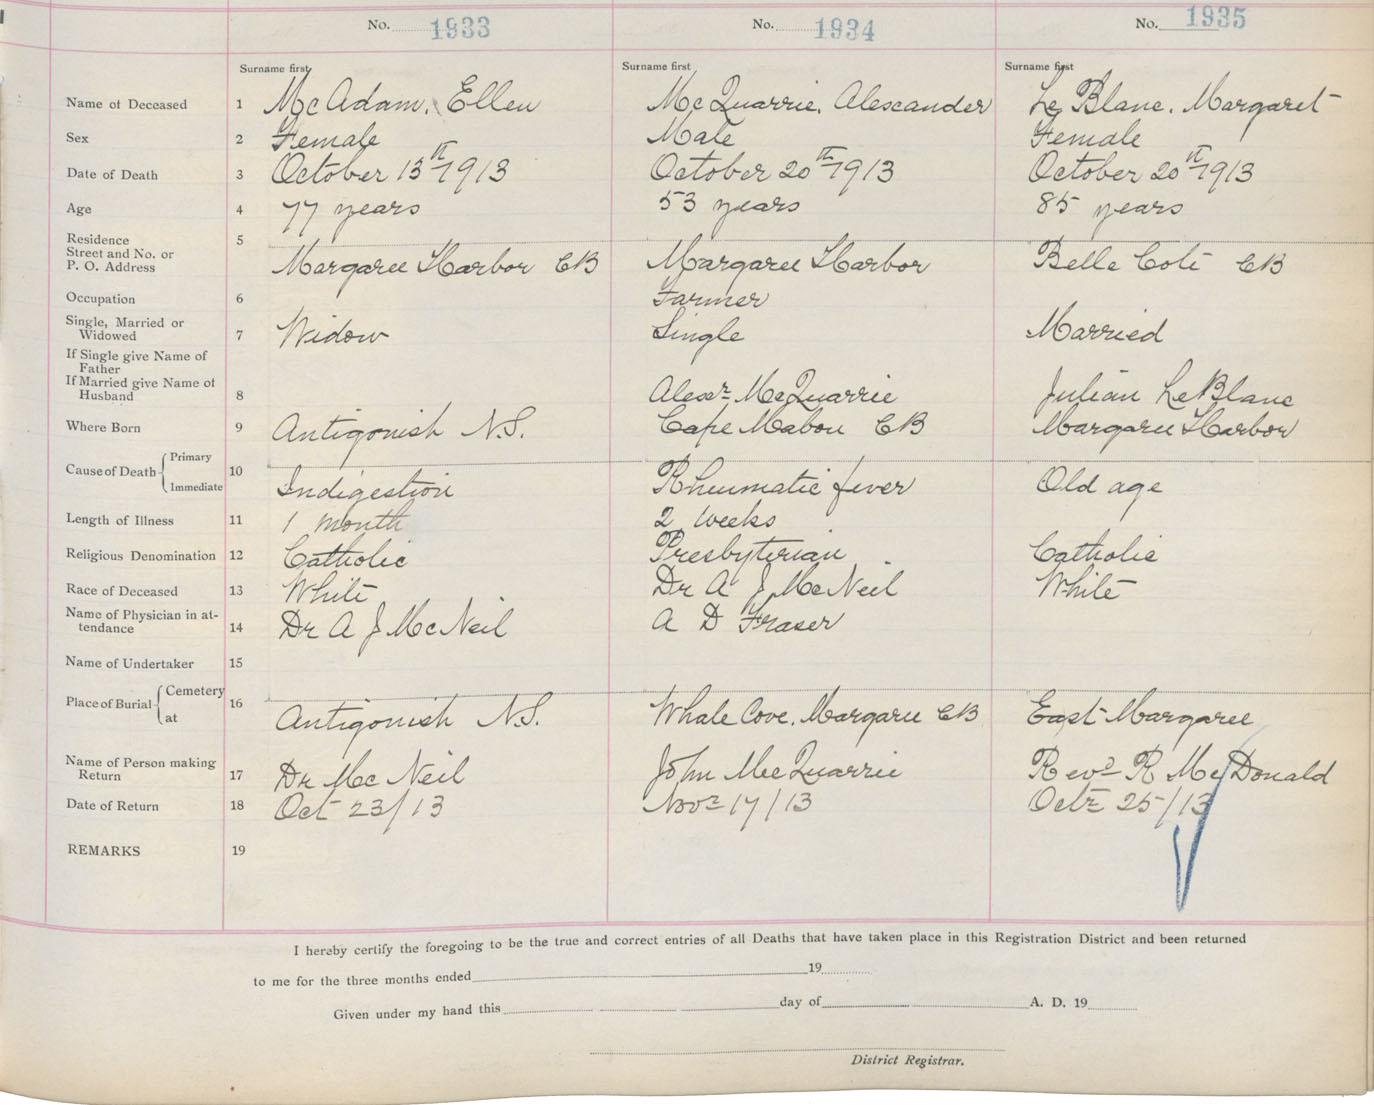 No. 1933 No. 1934 No. 1935
Surname first Surname first Surname first
Name of Deceased 1 McAdam, Ellen McQuarrie, Alexcander Le Blanc, Margaret
Sex 2 Female Male Female
Date of Death 3 October 13th 1913 October 20th 1913 October 20th 1913
Age 4 77 years 53 years 85 years
Residence 5
Street and No. or
P. O. Address Margaree Harbor CB Margaree Harbor Belle Cote CB
Occupation 6 Farmer
Single, Married or
Widowed 7 Widow Single Married
If Single give Name of
Father
If Married give Name of
Husband 8 Alexr McQuarrie Julian LeBlanc
Where Born 9 Antigonish N.S. Cape Mabou CB Margaree Harbor
Cause of Death Primary 10
Immediate Indigestion Rheumatic fever Old age
Length of Illness 11 1 month 2 weeks
Religious Denomination 12 Catholic Presbyterian Catholic
Race of Deceased 13 White Dr A J McNeil White
Name of Physician in at-
tendance 14 Dr A J McNeil A D Fraser
Name of Undertaker 15
Place of Burial Cemetery 16
at Antigonish N.S. Whale Cove, Margaree CB East Margaree
Name of Person making
Return 17 Dr McNeil John McQuarrie Revd R McDonald
Date of Return 18 Oct 23/13 Novr 17/13 Octr 25/13
REMARKS 19
I hereby certify the foregoing to be the true and correct entries of all Deaths that have taken place in this Registration District and been returned
to me for the three months ended 19
Given under my hand this day of A. D. 19
District Registrar.